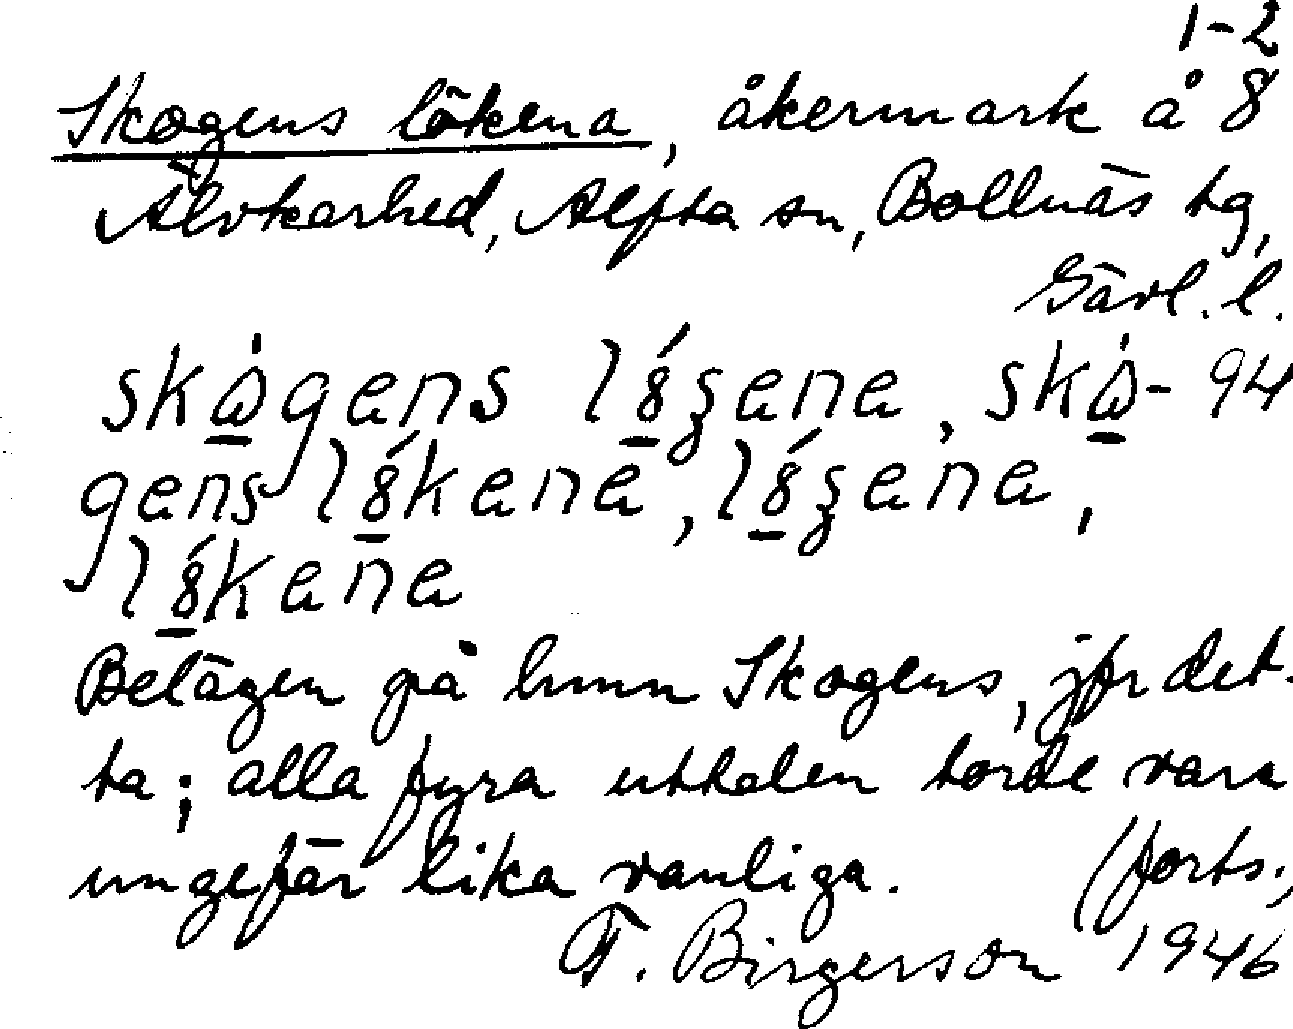 1-2
Skogens lökena, åkermark å 8
Älvkarhed, Alfta sn, Bollnäs tg,
Gävl. l.
skògens lóʒene, skò- 94
gens lókene, lóʒene,
lókene
Belägen på hmn Skogens, jfr det-
ta; alla fyra uttalen torde vara
ungefär lika vanliga. (forts.)
F. Birgerson 1946